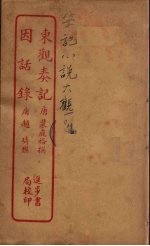 東觀奏記 唐裴庭裕撰
因話錄 唐趙璘撰
進步書
局校印
筆記小說大觀